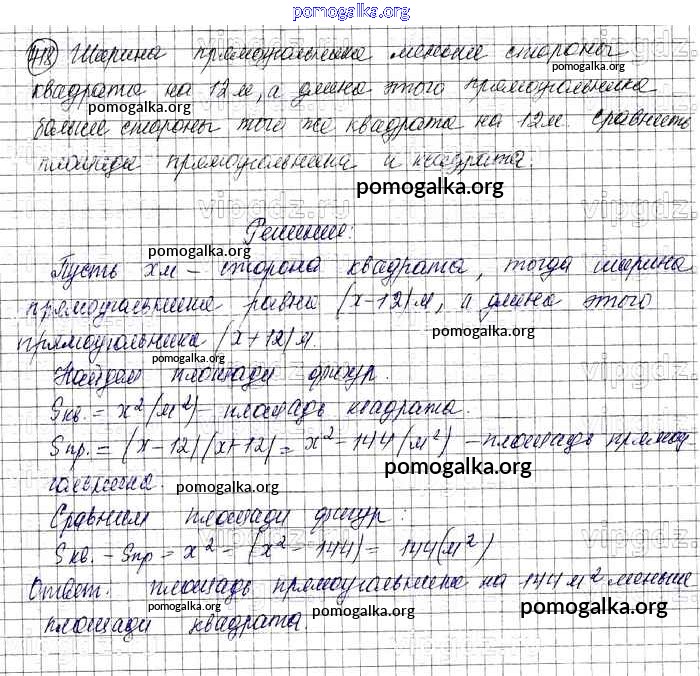 pomogalka.org
418) Ширина прямоугольника меньше стороны
квадрата на 12 м, а длина этого прямоугольника
pomogalka.org
больше стороны того же квадрата на 12 м. Сравнить
площади прямоугольника и квадрата.
pomogalka.org
vipgdz.ru
Решение:
pomogalka.org
Пусть x м – сторона квадрата, тогда ширина
прямоугольника равна (x-12) м, а длина этого
прямоугольника (x+12) м.
pomogalka.org
Найдем площади фигур.
Sкв. = x² (м²) – площадь квадрата.
Sпр. = (x-12)(x+12) = x² - 144 (м²) – площадь прямоу-
гольника.
pomogalka.org
pomogalka.org
Сравним площади фигур:
Sкв. - Sпр = x² - (x² - 144) = 144 (м²)
Ответ: площадь прямоугольника на 144 м² меньше
pomogalka.org pomogalka.org pomogalka.org
площади квадрата.